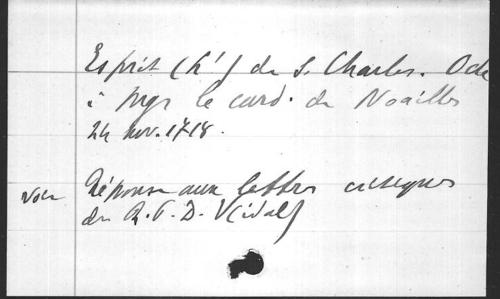 Esprit (L') de S. Charles. Ode
à Mgr le card. de Noailles
24 nov. 1718.
Voir Réponse aux lettres critiques
du R. P. D. V(idal)